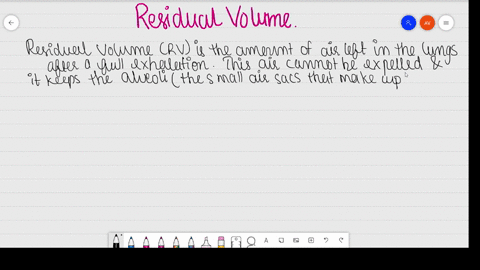 Residual Volume.
Residual Volume (RV) is the amount of air left in the lungs
after a full exhalation. This air cannot be expelled &
it keeps the alveoli (the small air sacs that make up